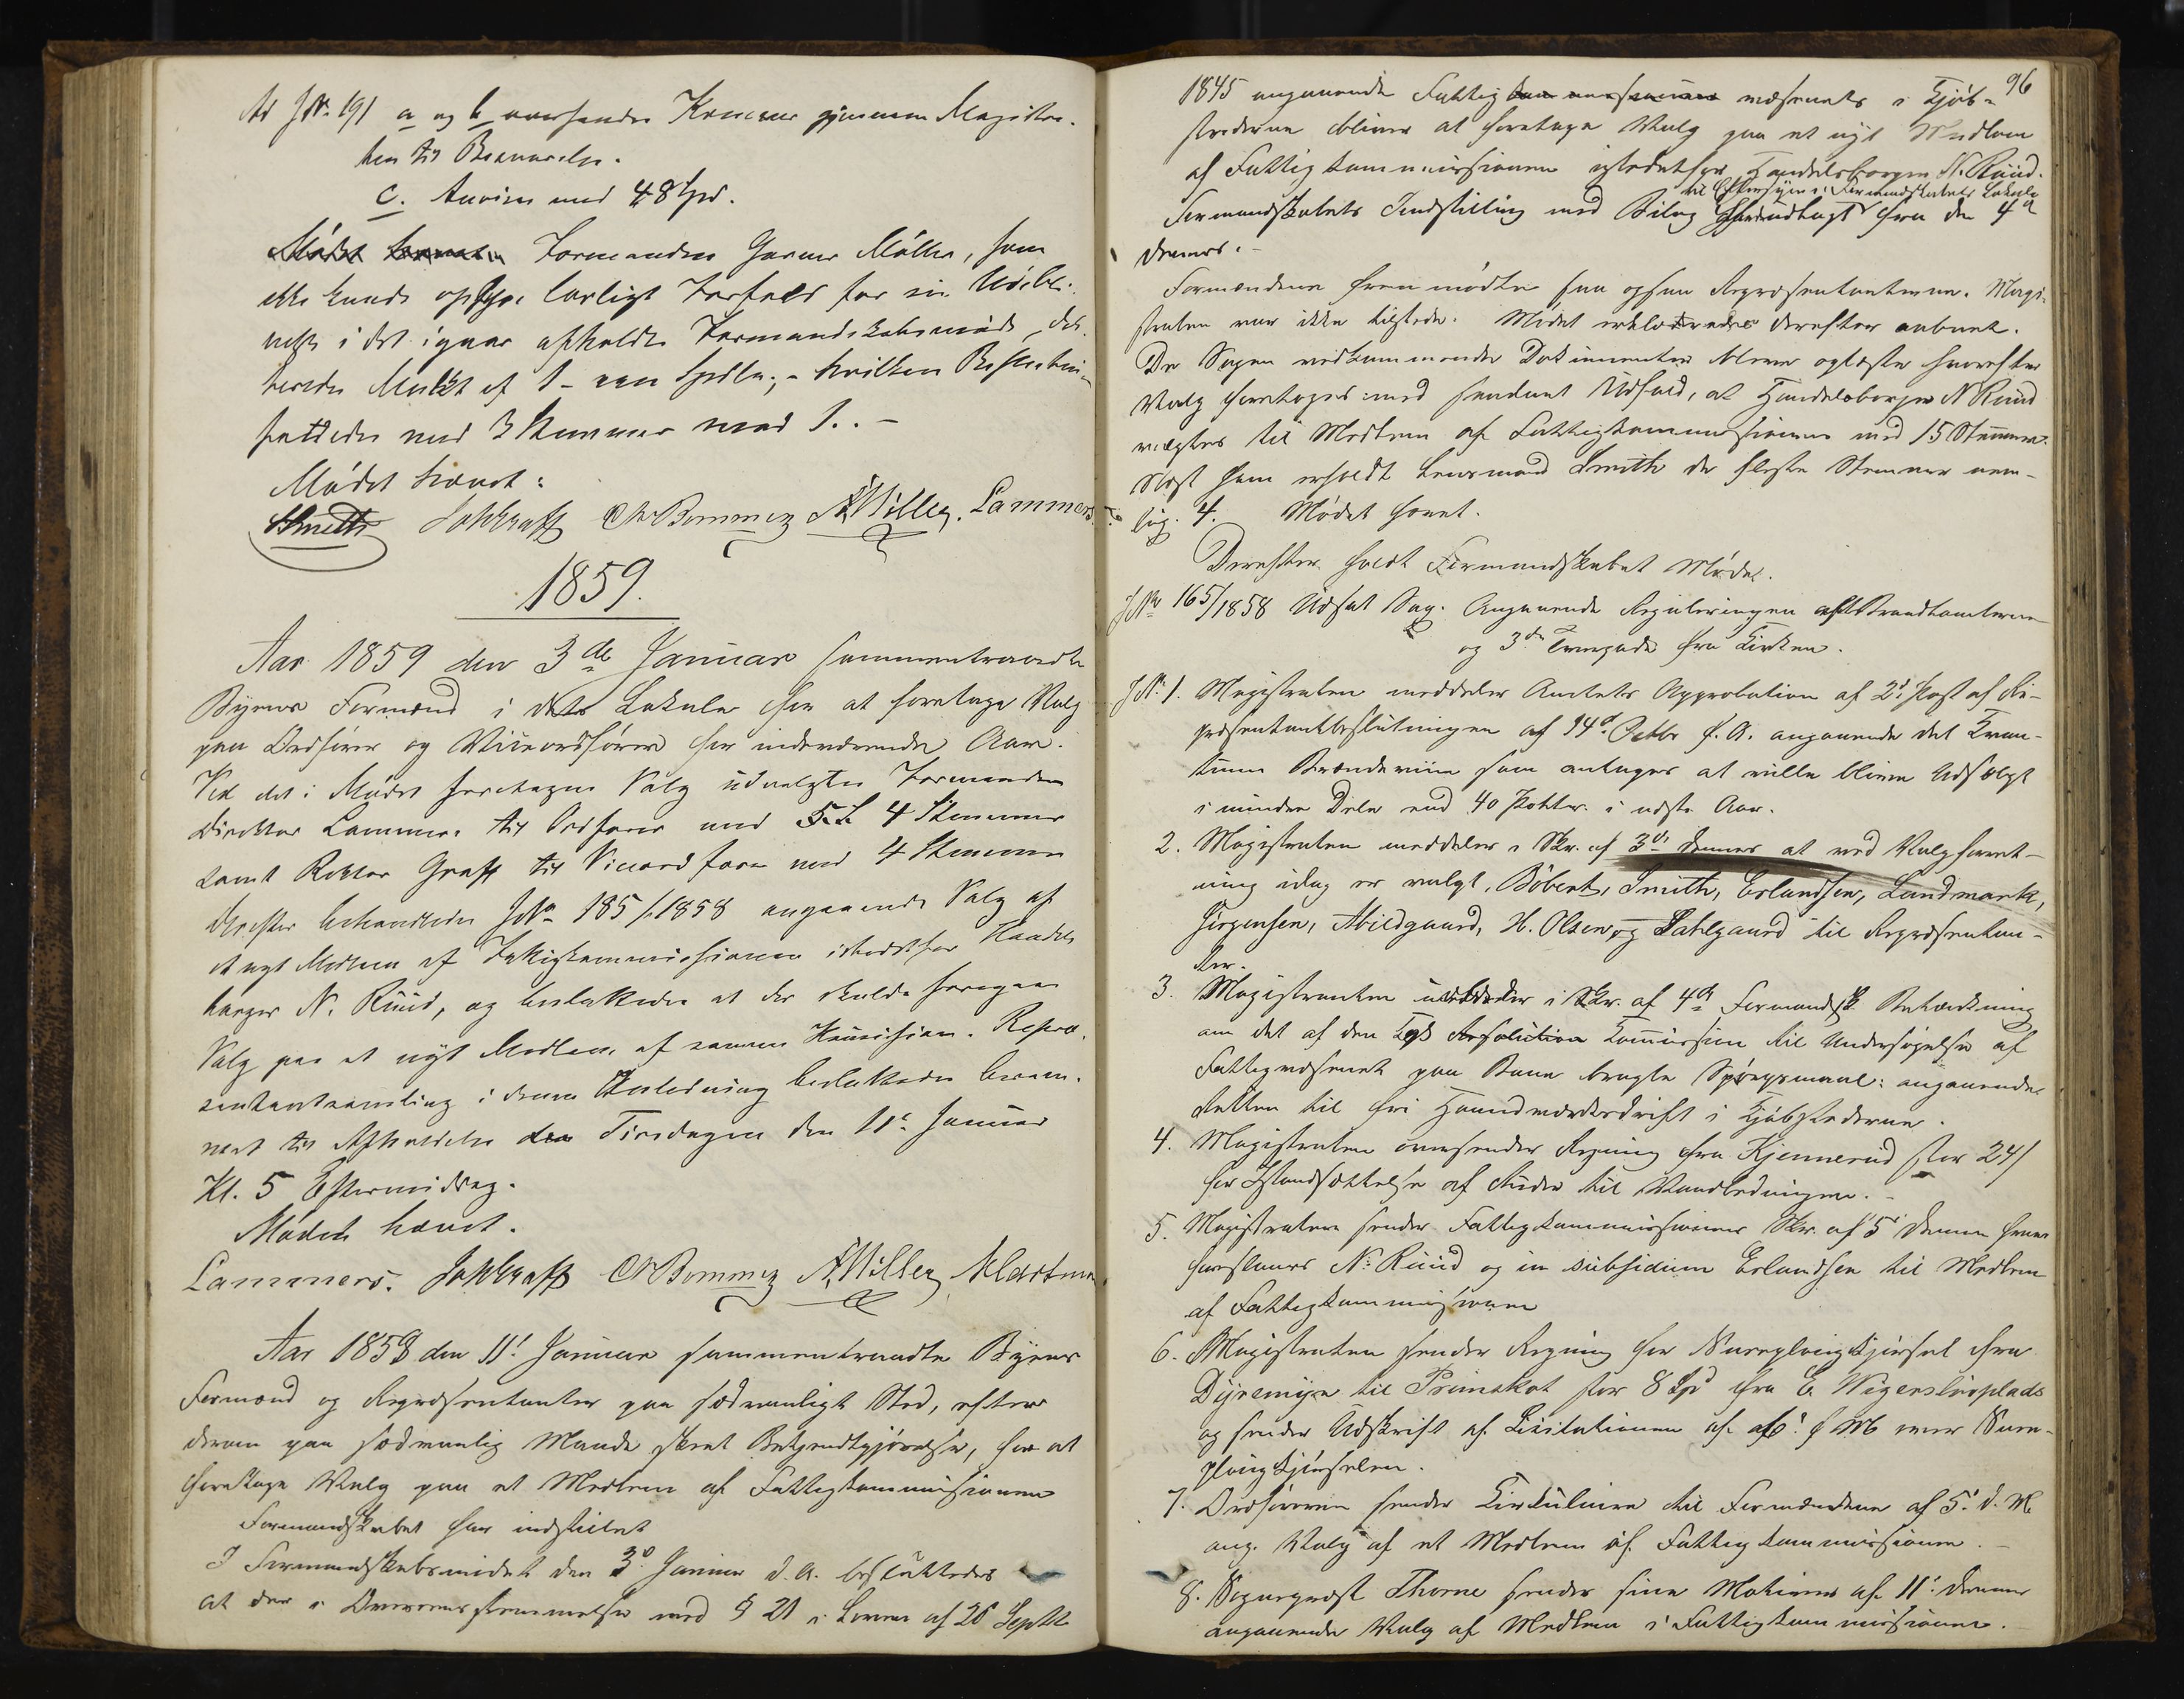 Ad JN. 191 a og b oversendes Kemner gjennem Magistra-
ten til Besvarelse.
c. Anvises med 48 Spd.
Mødet hævet Formanden Garver Møller, som
ikke kunde opgive lovligt Forfald for sin Udebli-
velse i det igaar afholdte Formandskabsmøde, dik-
teredes Mulkt af 1 - een Spdlr; - hvilken Beslutning
fattedes med 3 Stemmer mod 1. -
Mødet hævet:
Smith Joh Graff Chr Bommen A Miller. Lammers.
1859.
Aar 1859 den 3de Januar sammentraadte
Byens Formænd i dets Lokale for at foretage Valg
paa Ordfører og Viceordfører for indeværende Aar.
Ved det i Mødet foretagne Valg udvalgtes Formanden
Direktør Lammers til Ordfører med 4 Stemmer
samt Rektor Graff til Viceordfører med 4 Stemmer
Derefter behandledes JNo 185/1858 angaaende Valg af
et nyt Medlem af Fattigkommissionen istedetfor Handels-
borger N. Ruud, og besluttedes at der skulde foregaa
Valg paa et nyt Medlem af samme Kommission. Repræ-
sentantsamling i denne Anledning besluttedes beram-
met til Afholdelse den Tirsdagen den 11te Januar
Kl. 5 Eftermiddag.
Mødet hævet.
Lammers. Joh Graff Chr Bommen A Miller
Aar 1859 den 11' Januar sammentraadte Byens
Formænd og Repræsentanter paa sædvanligt Sted, efter
derom paa sædvanlig Maade skeet Bekjendtgjørelse, for at
foretage Valg paa et Medlem af Fattigkommissionen
Formandskabet har indstillet
I Formandskabsmødet den 3d Januar d.A. besluttedes
at der i Overensstemmelse med § 21 i Loven af 20 Septbr
96
1845 angaaende Fattigkommissionens væsenets i Kjøb-
stæderne bliver at foretage Valg paa et nyt Medlem
af Fattigkommissionen istedetfor Handelsborger N. Ruud.
til Eftersyn i Formandskabets Lokale
Formandskabets Indstilling med Bilag fremlagt fra den 4d
dennes. -
Formændene fremmødte saa ogsaa Repræsentanterne. Magi-
straten var ikke tilstede. Mødet erklæredes derefter aabnet.
De Sagen vedkommende Dokumenter bleve oplæste hvorefter
Valg foretoges med saadant Udfald, at Handelsborger N Ruud
valgtes til Medlem af Fattigkommissionen med 15 Stemmer.
Næst ham erholdt Lensmand Smith de fleste Stemmer nem-
lig. 4. Mødet hævet.
Derefter holdt Formandskabet Møde.
JNo 165/1858 Udsat Sag. Angaaende Reguleringen af Brandtomterne
og 3die Tvergade fra Kirken.
JN. 1. Magistraten meddeler Amtets Approbation af 2d Post af Re-
præsentantbeslutningen af 14d Octbr f. A. angaaende det Kvan-
tum Brændeviin som antages at ville blive Udsolgt
i mindre Dele end 40 Potter i næste Aar.
2. Magistraten meddeler i Skr. af 3d dennes at ved Valgforret-
ning idag er valgt, Böbert, Smith, Erlandsen, Landmark,
Jørgensen, Abildgaard, H. Olsen og Dahlgaard til Repræsentan-
ter.
3. Magistraten udbeder i Skr. af 4de Formandsk. Betænkning
om det af den Kgl Resolution Kommission til Undersøgelse af
Fattigvæsenet paa Bane bragte Spørgsmaal: angaaende
Retten til fri Haandværksdrift i Kjøbstæderne.
4. Magistraten oversender Regning fra Kjennerud stor 24/
for Istandsættelse af Huder til Vandledningen. -
5. Magistraten sender Fattigkommissionens Skr. af 5' dennes hvori
foreslaaes N. Ruud og in subsidium Erlandsen til Medlem
af Fattigkommissionen
6. Magistraten sender Regning for Sneeplougkjørsel fra
Dyremyr til Primstok stor 8 Spd fra E. Wigersløvplads
og sender Udskrift af Licitationen af f M over Snee-
plougkjørselen.
7. Ordføreren sender Cirkulaire til Formændene af 5' d. M
ang. Valg af et Medlem af Fattigkommissionen. -
8. Sogneprest Thorne sender sine Motiver af 11' dennes
angaaende Valg af Medlem i Fattigkommissionen.